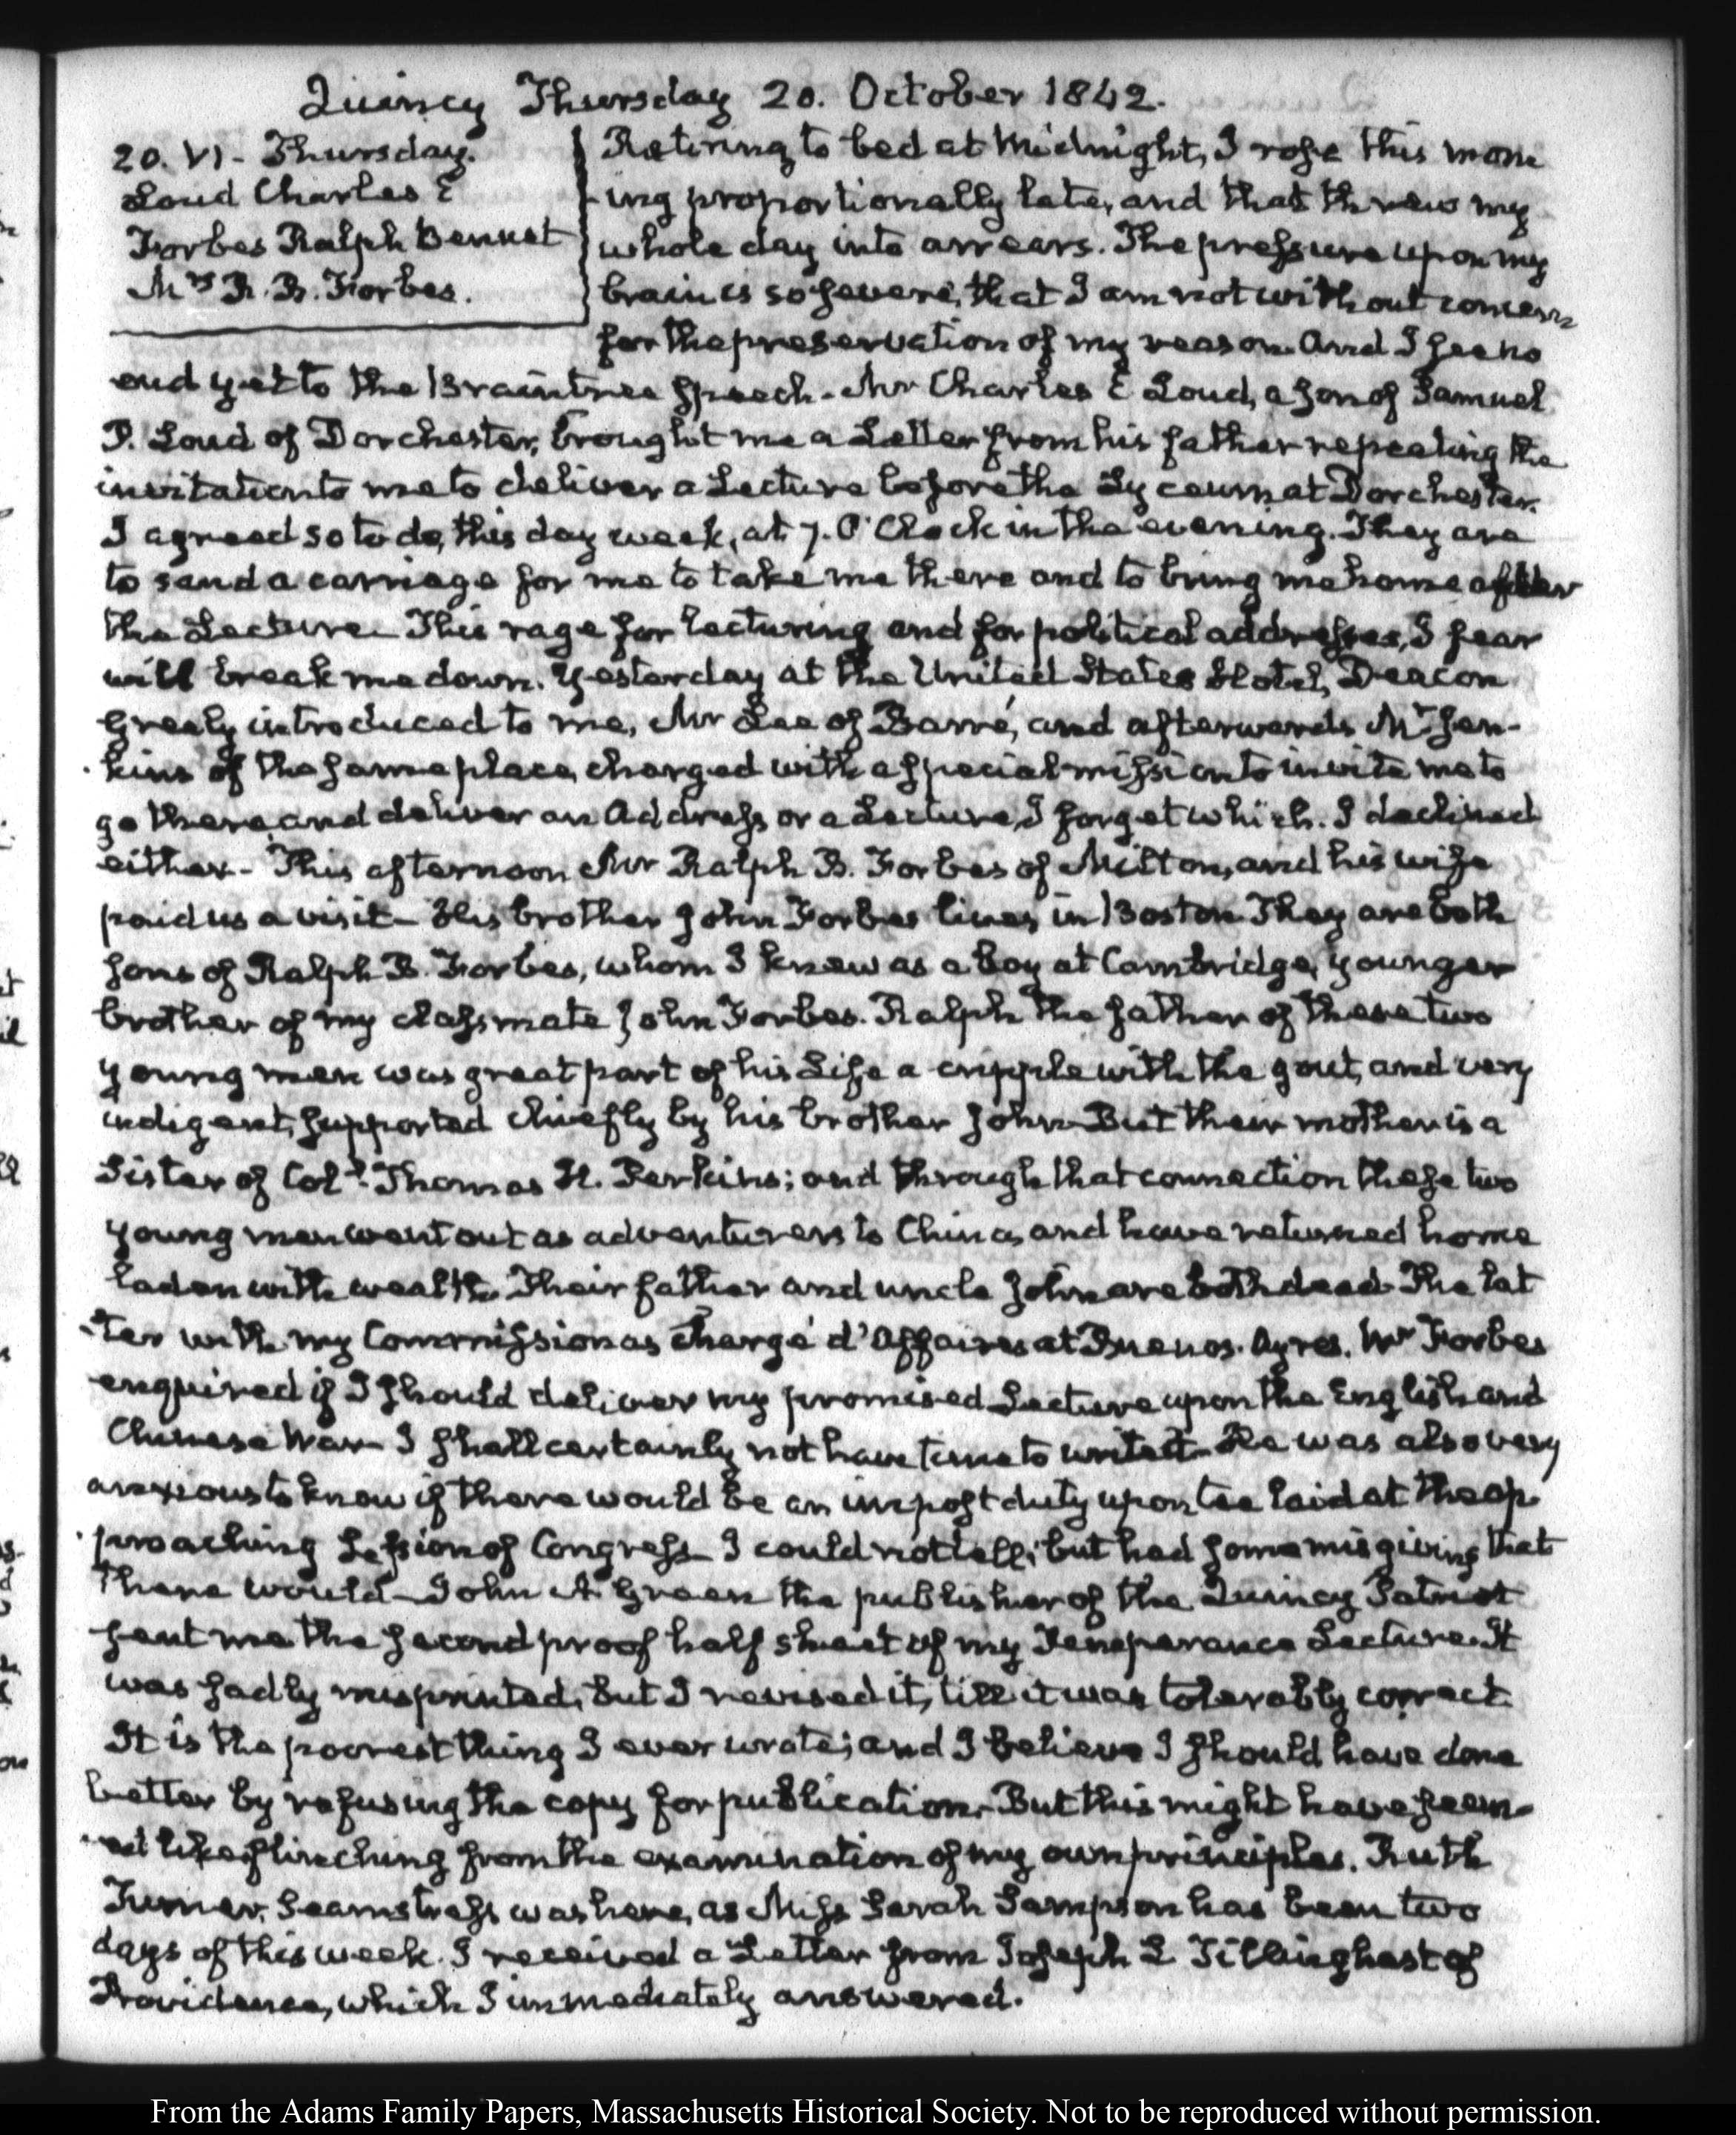 Quincy Thursday 20. October 1842.
20. VI. Thursday.
Loud Charles E
Forbes Ralph Bennet
Mrs R. B. Forbes.
Retiring to bed at Midnight, I rose this morn
-ing proportionally late, and that threw my
whole day into arrears. The pressure upon my
brain is so severe, that I am not without concern
for the preservation of my reason. And I see no
end yet to the Braintree speech. Mr Charles E Loud, a son of Samuel
P. Loud of Dorchester, brought me a Letter from his father repeating the
invitation to me to deliver a Lecture before the Lyceum at Dorchester.
I agreed so to do, this day week, at 7. O'Clock in the evening. They are
to send a carriage for me to take me there and to bring me home after
the Lecture. This rage for lecturing and for political addresses, I fear
will break me down. Yesterday at the United States Hotel, Deacon
Grealy introduced to me, Mr Lee of Barré, and afterwards Mr Jen-
-kins of the same place, charged with a special mission to invite me to
go there, and deliver an Address or a Lecture, I forget which. I declined
either. This afternoon Mr Ralph B. Forbes of Milton, and his wife
paid us a visit. His brother John Forbes lives in Boston. They are both
sons of Ralph B. Forbes, whom I knew as a boy at Cambridge, younger
brother of my classmate John Forbes. Ralph the father of these two
young men was great part of his Life a cripple with the gout, and very
indigent, supported chiefly by his brother John. But their mother is a
Sister of Coll. Thomas H. Perkins; and through that connection these two
young men went out as adventurers to China, and have returned home
laden with wealth. Their father and uncle John are both dead. The lat
-ter with my Commission as Chargé d'Affaires at Buenos. Ayres. Mr Forbes
enquired if I should deliver my promised Lecture upon the English and
Chinese War. I shall certainly not have time to write it. He was also very
anxious to know if there would be an impost duty upon tea laid at the ap
-proaching Session of Congress. I could not tell; but had some misgiving that
there would. John A Green the publisher of the Quincy Patriot
sent me the second proof half sheet of my Temperance Lecture. It
was sadly misprinted, but I revised it, till it was tolerably correct.
It is the poorest thing I ever wrote; and I believe I should have done
better by refusing the copy for publication. But this might have seem-
-ed like flinching from the examination of my own principles. Ruth
Turner, Seamstress was here, as Miss Sarah Sampson has been two
days of this week. I received a Letter from Joseph L Tillinghast of
Providence, which I immediately answered.
From the Adams Family Papers, Massachusetts Historical Society. Not to be reproduced without permission.